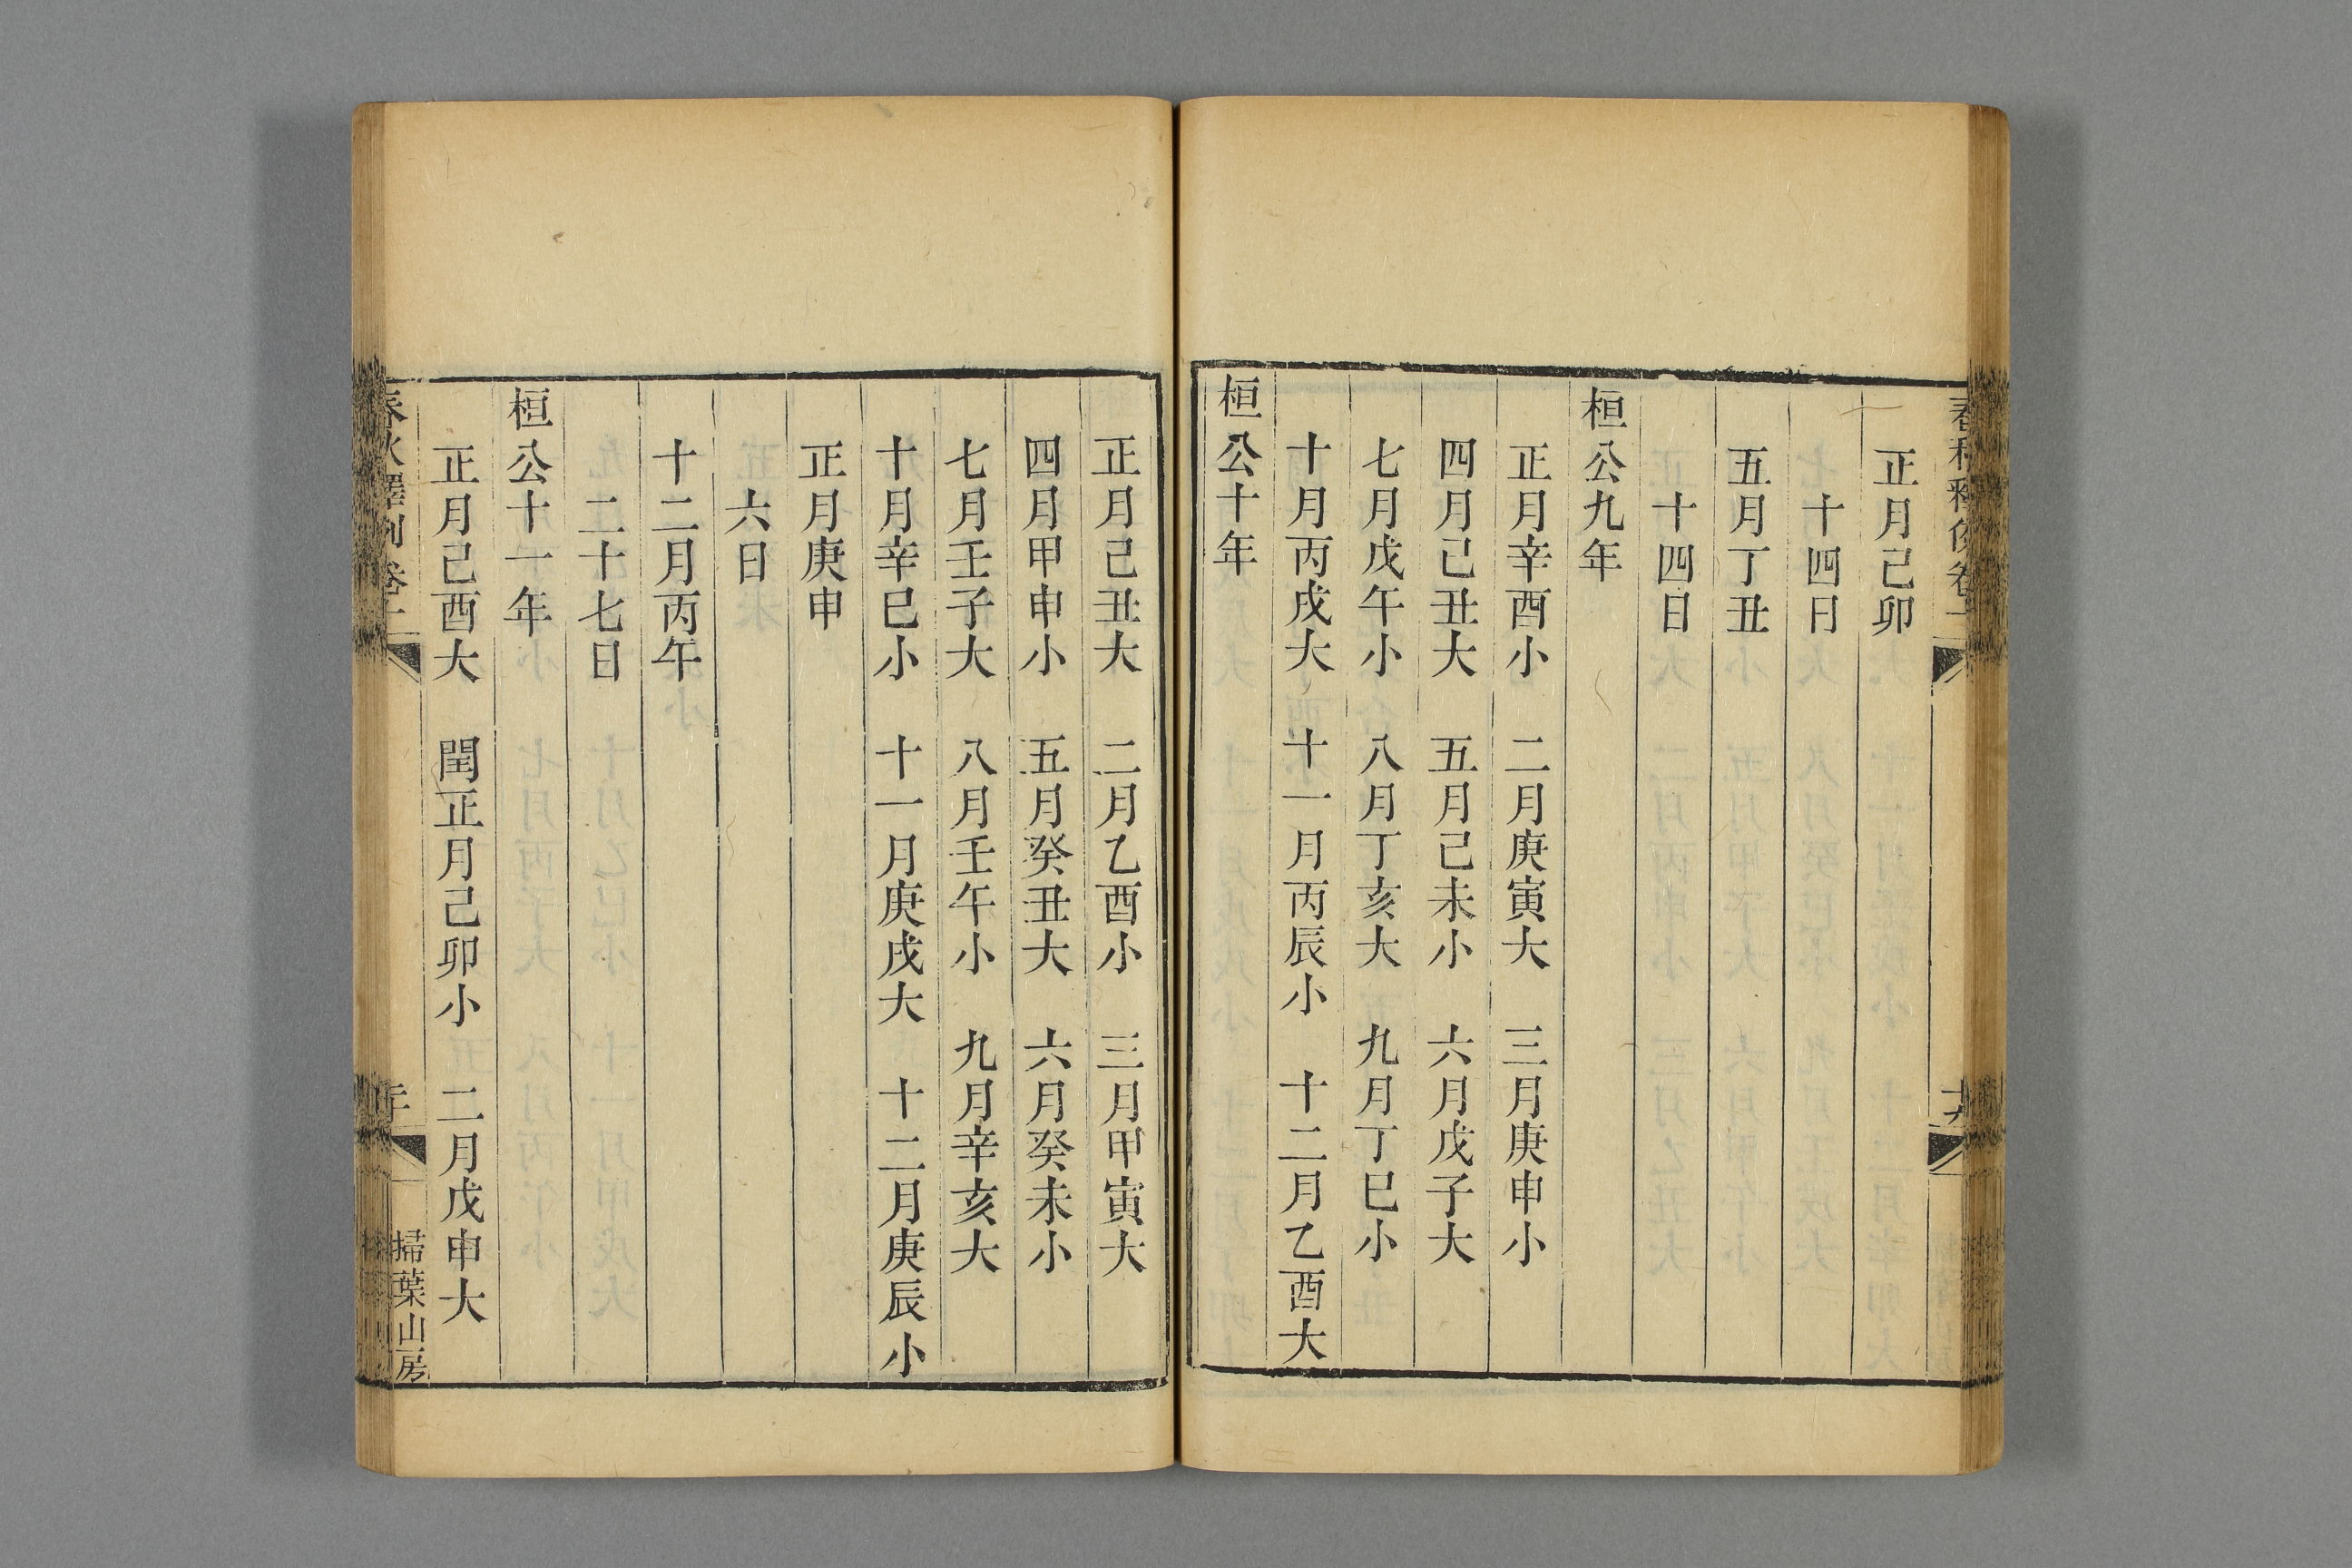 正月己卯
十四日
五月丁丑
十四日
桓公九年
正月辛酉小　二月庚寅大　三月庚申小
四月己丑大　五月己未小　六月戊子大
七月戊午小　八月丁亥大　九月丁巳小
十月丙戌大　十一月丙辰小　十二月乙酉大
桓公十年
正月己丑大　二月乙酉小　三月甲寅大
四月甲申小　五月癸丑大　六月癸未小
七月壬子大　八月壬午小　九月辛亥大
十月辛巳小　十一月庚戌大　十二月庚辰小
正月庚申
六日
十二月丙午
二十七日
桓公十一年
正月己酉大　閏正月己卯小　二月戊申大
春秋釋例卷十
掃葉山房